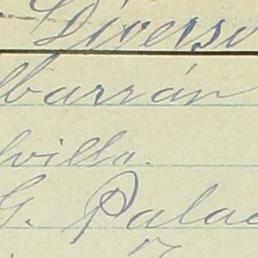 Diverso
lbarrán
lvilla.
G. Palac